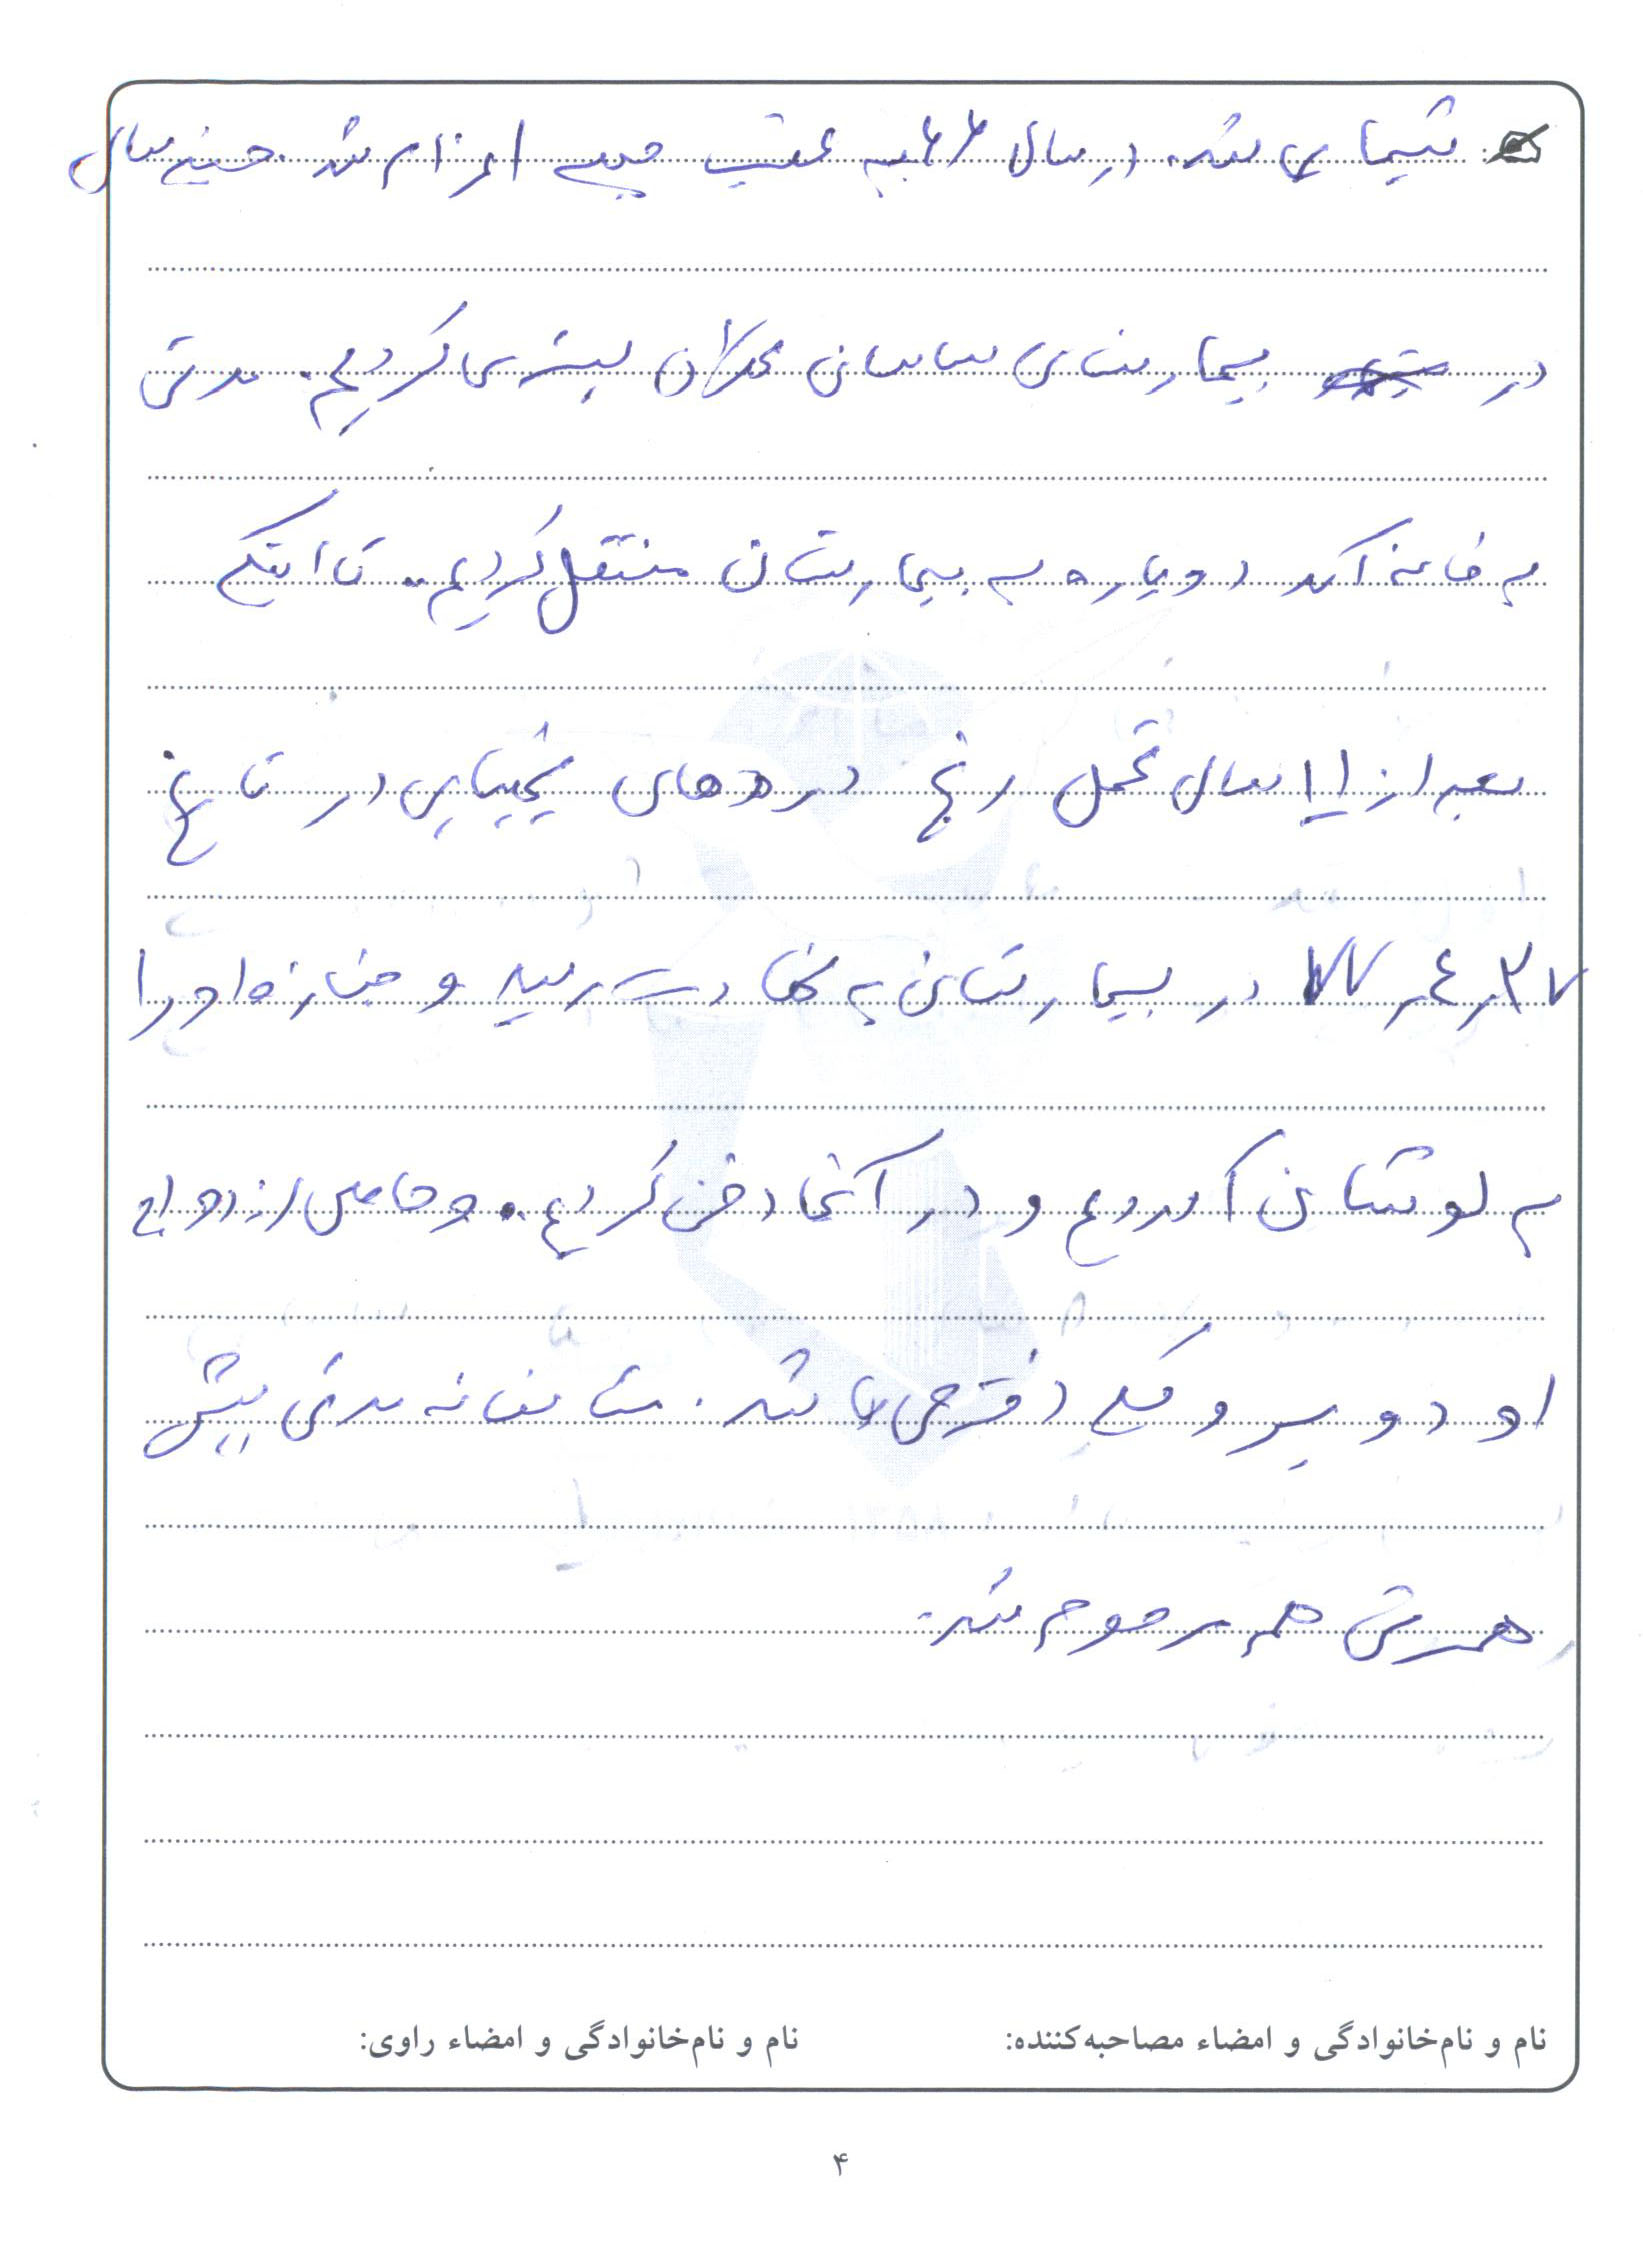 شیمیایی شد. در سال ۶۶ به عقب جبهه اعزام شد. چندین سال
در بیمارستان ساسان تهران بستری کردیم. مدتی
به خانه آمد دوباره به بیمارستان منتقل کردیم.. تا اینکه
بعد از ۱۱ سال تحمل رنج دردهای شیمیایی در تاریخ
۷۷٫۴٫۳۷ در بیمارستان به شهادت رسید و جنازه او را
به لوشان آوردیم و در آنجا دفن کردیم.. و حاصل ازدواج
او دو پسر و یک دختر می باشد. متاسفانه مدتی پیش
همسرش هم مرحوم شد.
نام و نام‌خانوادگی و امضاء مصاحبه‌کننده: نام و نام‌خانوادگی و امضاء راوی:
۴